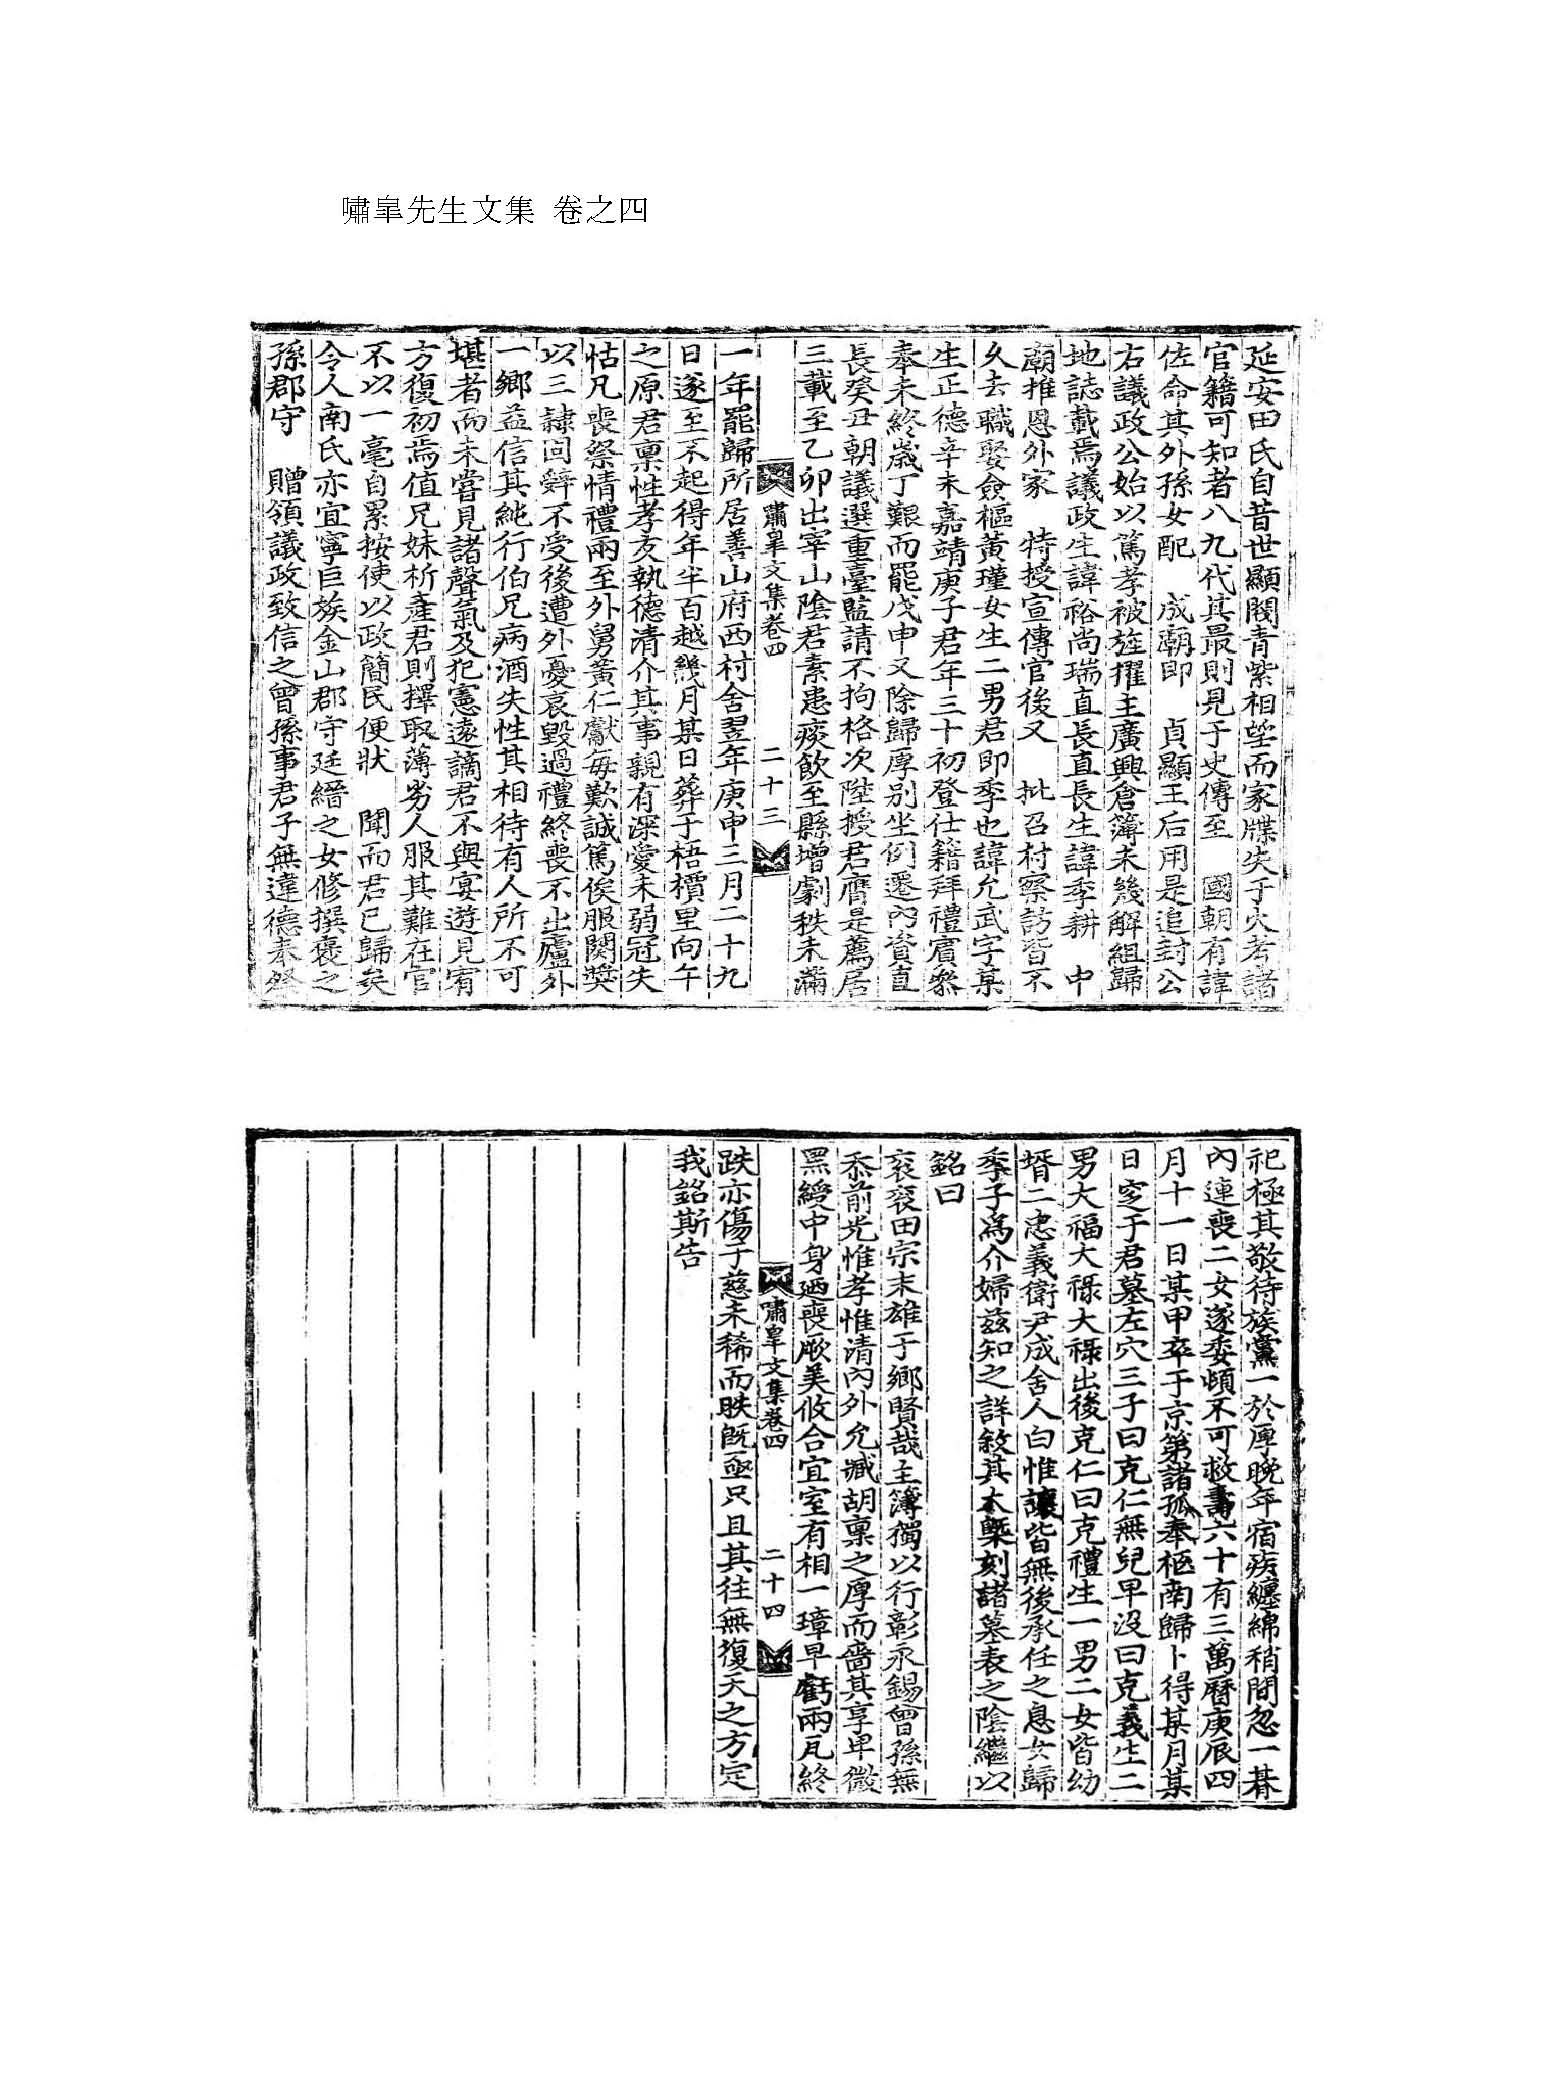 嘯皐先生文集 卷之四
延安田氏自昔世顯閥青紫相望而家牒失于火考諸
官籍可知者八九代其最則見于史傳至 國朝有諱
佐命其外孫女配 成廟卽 貞顯王后用是追封公
右議政公始以篤孝被旌擢主廣興倉簿未幾解組歸
地誌載焉議政生諱裕尚瑞直長直長生諱季耕 中
廟推恩外家 特授宣傳官後又 批召村察訪皆不
久去職娶僉樞黃瑾女生二男君卽季也諱允武字某
生正德辛未嘉靖庚子君年三十初登仕籍拜禮賓叅
奉未終歲丁艱而罷戊申又除歸厚別坐例遷內資直
長癸丑朝議選重臺監請不拘格次陞授君膺是薦居
三載至乙卯出宰山陰君素患痰飮至縣增劇秩未滿
嘯皐文集卷四 二十三
一年罷歸所居善山府西村舍翌年庚申三月二十九
日遂至不起得年半百越幾月某日葬于梧櫃里向午
之原君稟性孝友執德淸介其事親有深愛未弱冠失
怙凡喪祭情禮兩至外舅黃仁獻每歎誠篤俟服闋奬
以三隷回辭不受後遭外憂哀毀過禮終喪不出廬外
一鄕益信其純行伯兄病酒失性其相待有人所不可
堪者而未嘗見諸聲氣及犯憲遠謫君不與宴遊見宥
方復初焉值兄妹析產君則擇取薄劣人服其難在官
不以一毫自累按使以政簡民便狀 聞而君已歸矣
令人南氏亦宜寧巨族金山郡守廷縉之女修撰褒之
孫郡守 贈領議政致信之曾孫事君子無違德奉祭
祀極其敬待族黨一於厚晚年宿疾纏綿稍間忽一朞
內連喪二女遂委頓不可救壽六十有三萬曆庚辰四
月十一日某甲卒于京第諸孤奉柩南歸卜得某月某
日窆于君墓左穴三子曰克仁無兒早沒曰克義生二
男大福大祿大祿出後克仁曰克禮生一男二女皆幼
壻二忠義衛尹成舍人白惟讓皆無後承任之息女歸
季子爲介婦玆知之詳敍其大槩刻諸墓表之陰繼以
銘曰
袞袞田宗末雄于鄕賢哉主簿獨以行彰永錫曾孫無
忝前光惟孝惟淸內外允臧胡稟之厚而嗇其享卑微
黑綬中身廼喪厥美攸合宜室有相一璋早虧兩瓦終
嘯皐文集卷四 二十四
跌亦傷于慈未稀而昳旣亟只且其往無復天之方定
我銘斯告